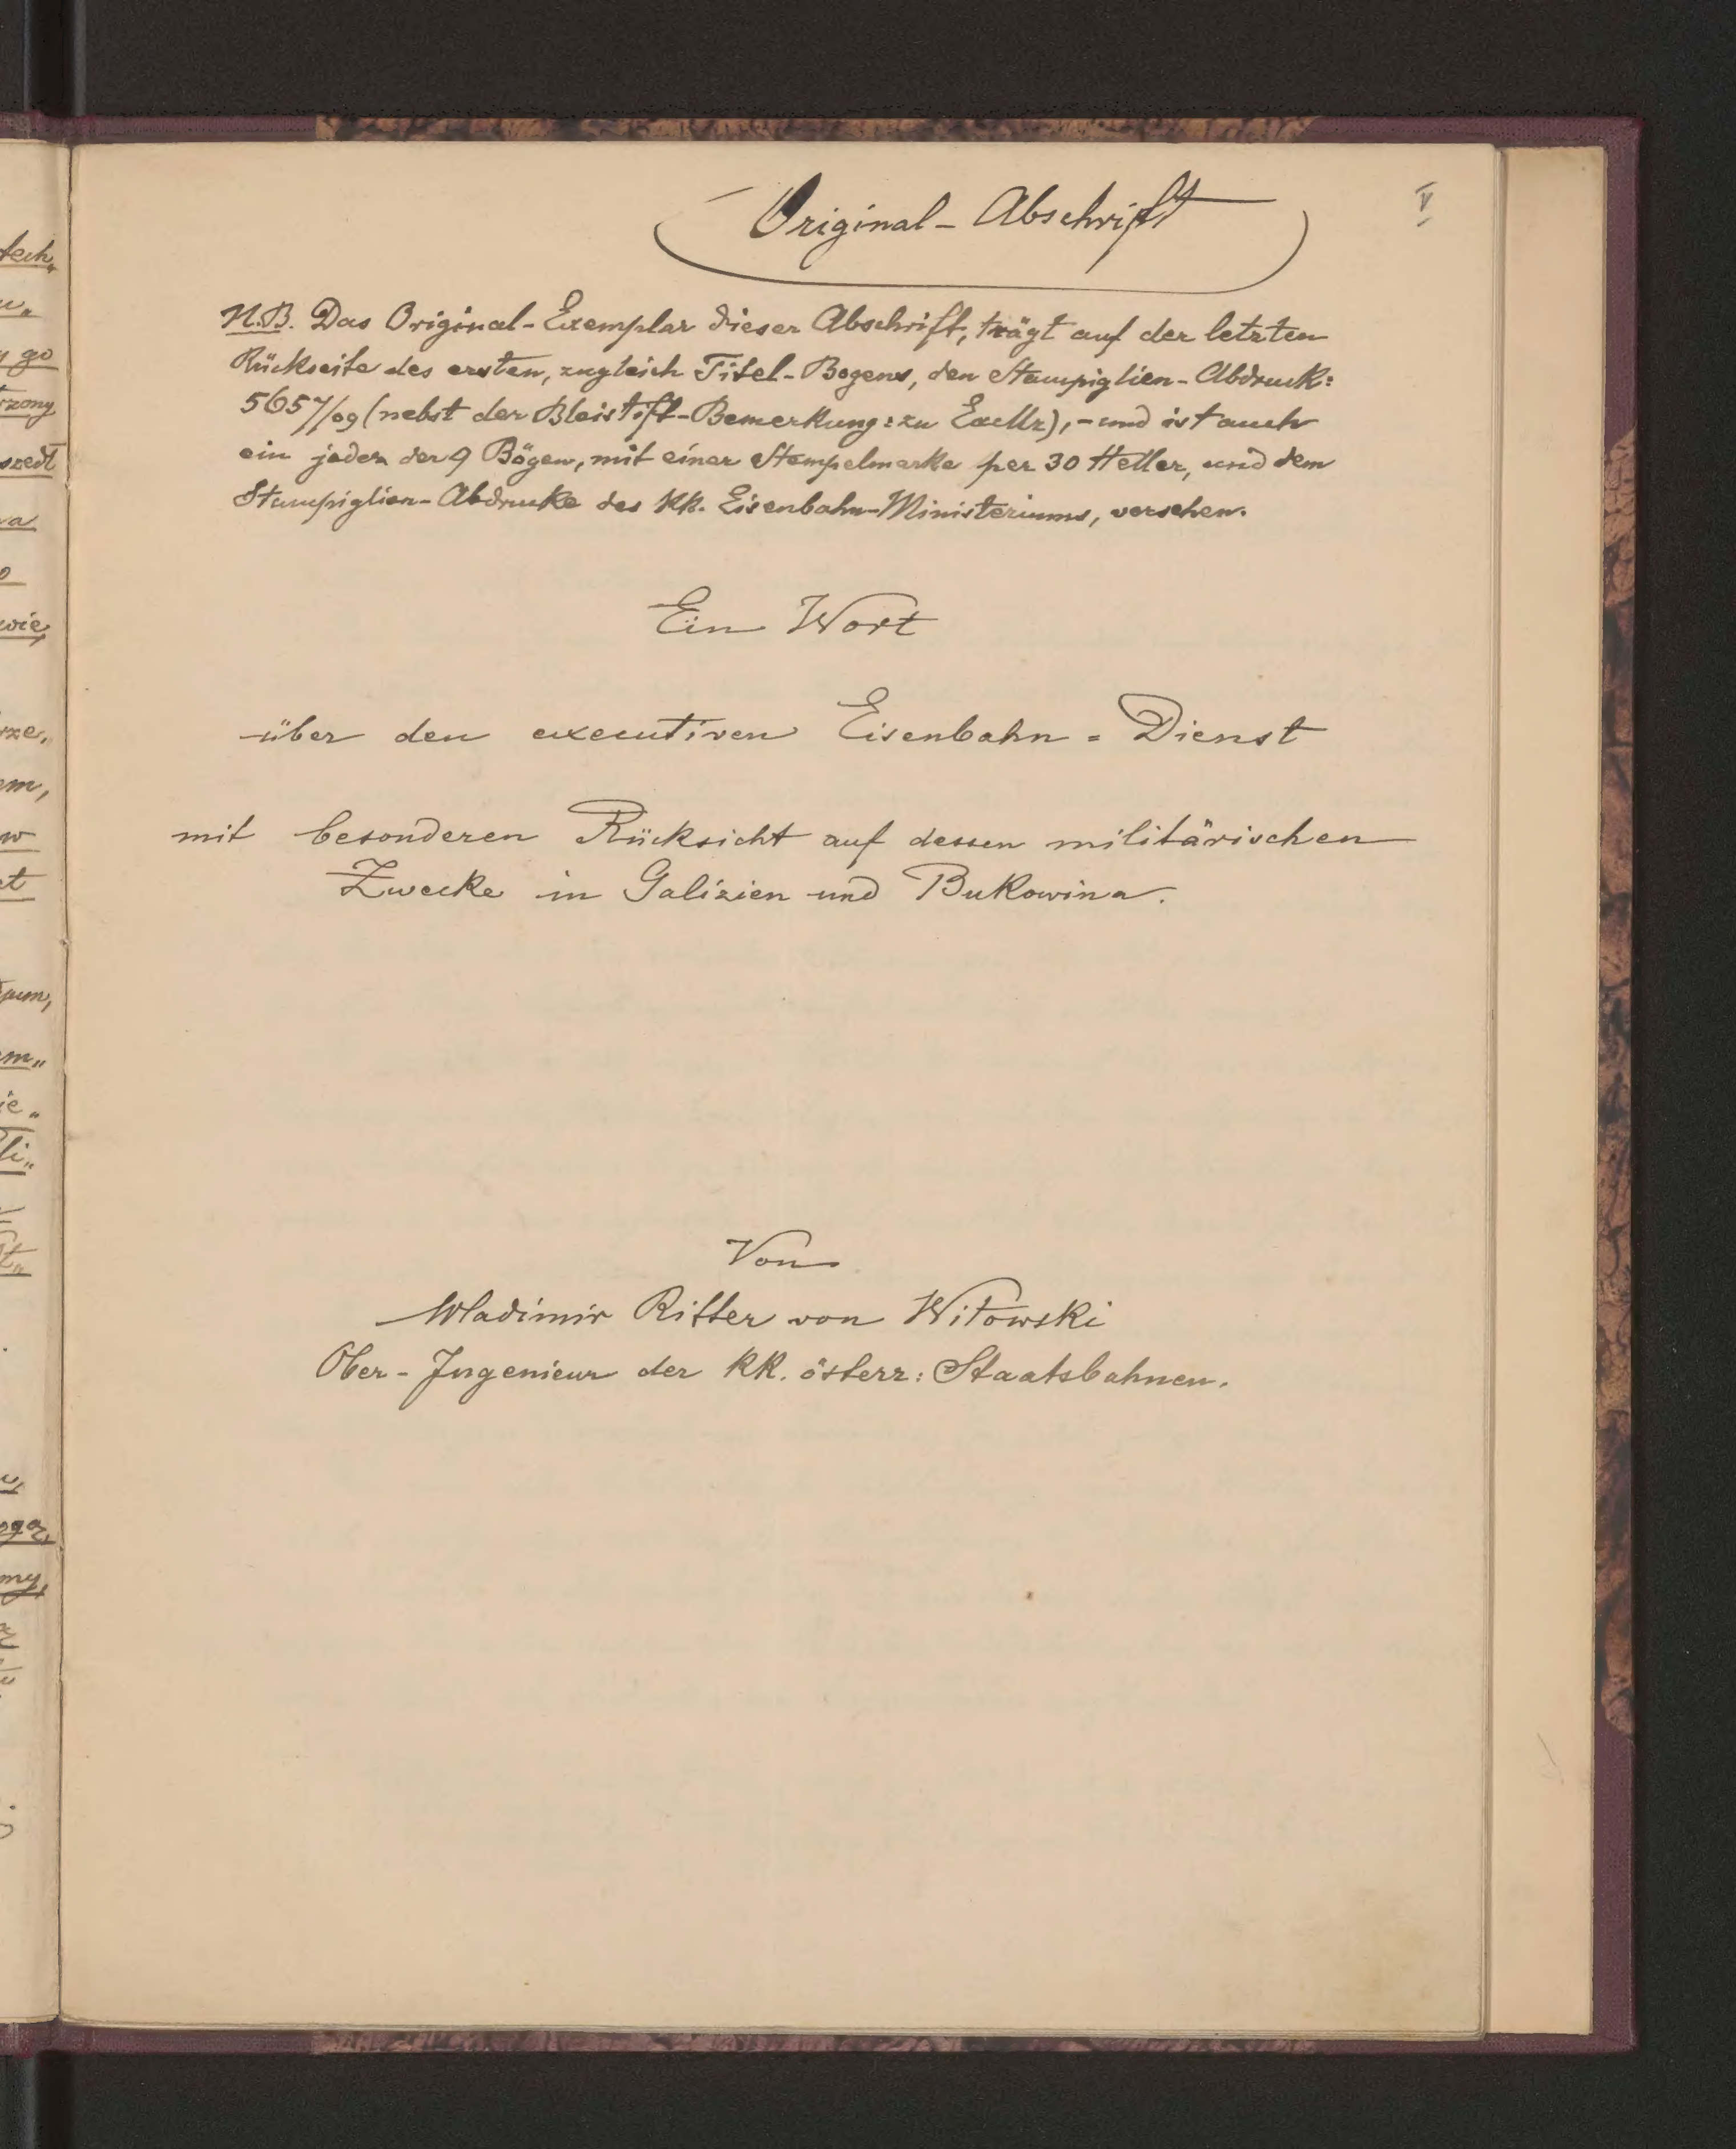 V
Original - Abschrift
N.B. Das Original-Exemplar dieser Abschrift, trägt auf der letzten
Rückseite des ersten, zugleich Titel-Bogens, den Stampiglien-Abdruck:
5657/09 (nebst der Bleistift-Bemerkung: zu Excllz), - und ist auch
ein jeder der 9 Bögen, mit einer Stempelmarke per 30 Heller, und dem
Stampiglien-Abdrucke des KK. Eisenbahn-Ministeriums, versehen.
Ein Wort
über den executiven Eisenbahn = Dienst
mit besonderen Rücksicht auf dessen militärischen
Zwecke in Galizien und Bukowina.
Von
Wladimir Ritter von Witowski
Ober-Ingenieur der KK. österr: Staatsbahnen.